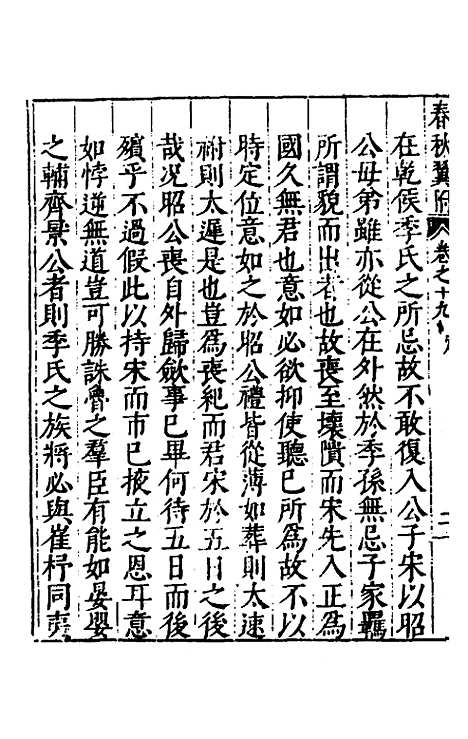 春秋翼附 卷之十九 二
在乾侯季氏之所忌故不敢復入公子宋以昭
公母弟雖亦從公在外然於季孫無忌子家羈
所謂貌而出者也故喪至壞隤而宋先入正爲
國久無君也意如必欲抑使聽已所爲故不以
時定位意如之於昭公禮皆從薄如葬則太速
祔則太遲是也豈爲喪紀而君宋於五日之後
哉况昭公喪自外歸歛事已畢何待五日而後
殯乎不過假此以持宋而市已援立之恩耳意
如悖逆無道豈可勝誅魯之羣臣有能如晏嬰
之輔齊景公者則季氏之族將必與崔杼同夷